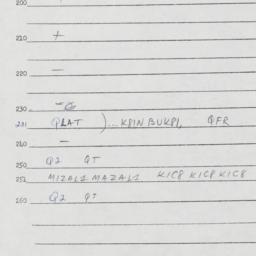 200
210 +
220 -
230 -G
231 QLAT )...KPINBUKPI, QFR
240 -
250 Q2 QT
251 MIZAL1 MAZAL1 KICP KICP KICP
260 Q2 QT